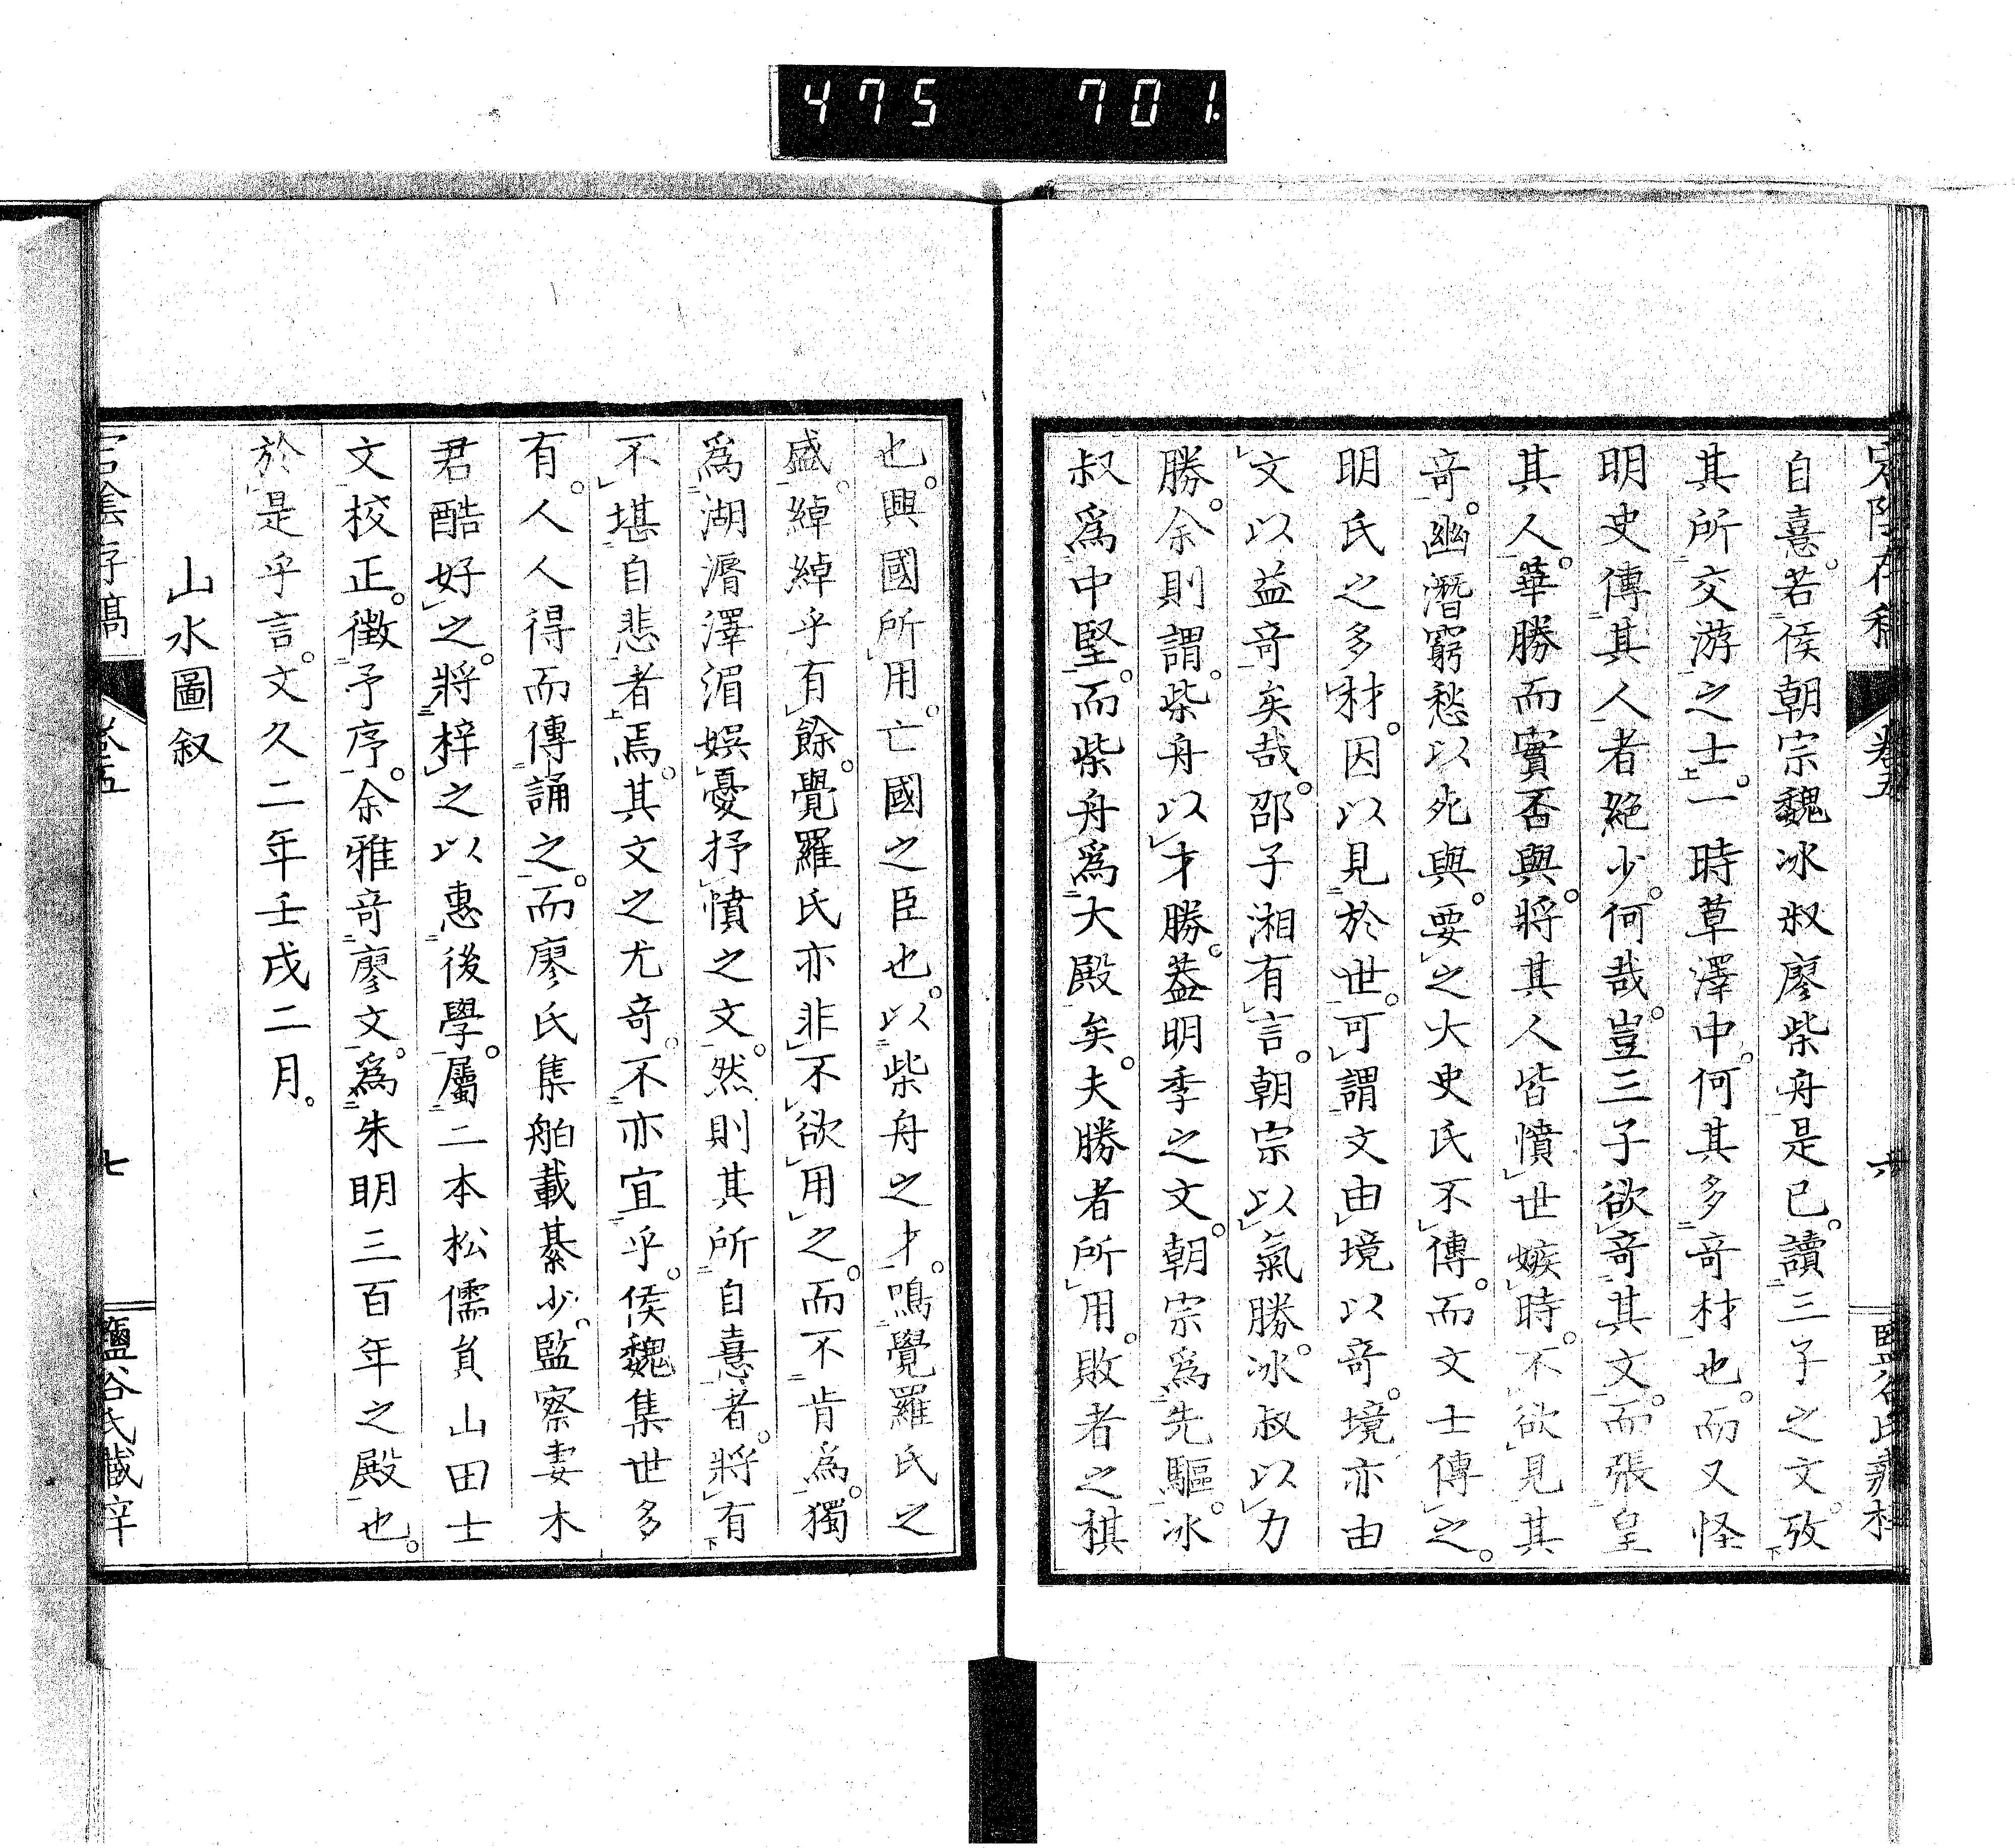 475 701.
卷五 六
自憙。若侯朝宗魏冰叔廖柴舟是已。讀三子之文。攷
其所交游之士。一時草澤中。何其多奇材也。而又怪
明史傳其人者絕少。何哉。豈三子欲奇其文。而張皇
其人。華勝而實否與。將其人皆憤世嫉時。不欲見其
奇。幽潛窮愁以死與。要之大史氏不傳。而文士傳之。
明氏之多材。因以見於世。可謂文由境以奇。境亦由
文以益奇矣哉。邵子湘有言。朝宗以氣勝。冰叔以力
勝。余則謂。柴舟以才勝。蓋明季之文。朝宗為先驅。冰
叔為中堅。而柴舟為大殿矣。夫勝者所用。敗者之棋
也。興國所用。亡國之臣也。以柴舟之才。鳴覺羅氏之
盛。綽綽乎有餘。覺羅氏亦非不欲用之。而不肯為。獨
為湖漘澤湄娛憂抒憤之文。然則其所自憙者。將有
不堪自悲者焉。其文之尤奇。不亦宜乎。侯魏集世多
有。人人得而傳誦之。而廖氏集舶載綦少。監察妻木
君酷好之。將梓之以惠後學。屬二本松儒員山田士
文校正。徵予序。余雅奇廖文。為朱明三百年之殿也。
於是乎言。文久二年壬戌二月。
山水圖叙
宕陰存稿 卷五 七 鹽谷氏藏梓